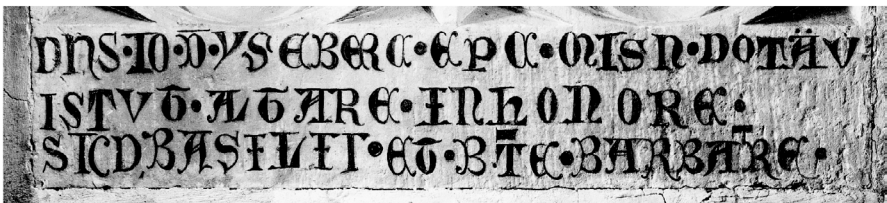 DNS·IO·D̄·YSEBERC·EPC·MISN·DOTAV
ISTVT̄·ALTARE·INHONORE·
STCDBASILII·ET·BTE·BARBARE·